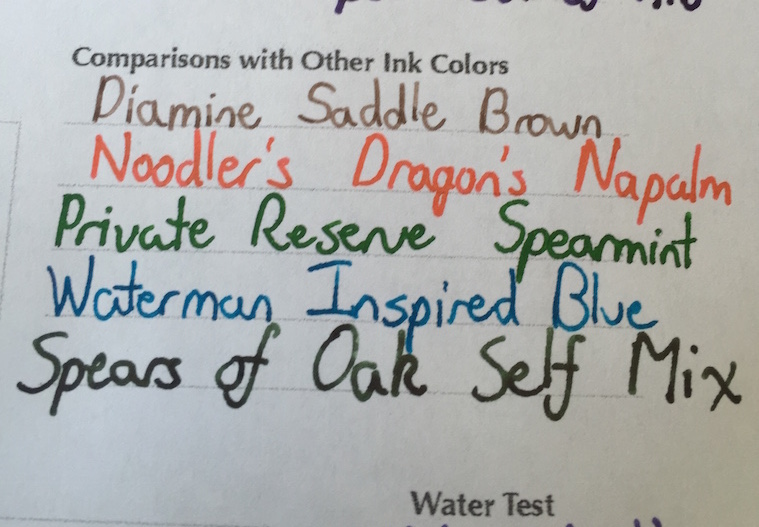 Comparisons with Other Ink Colors
Diamine Saddle Brown
Noodler's Dragon's Napalm
Private Reserve Spearmint
Waterman Inspired Blue
Spears of Oak Self Mix
Water Test